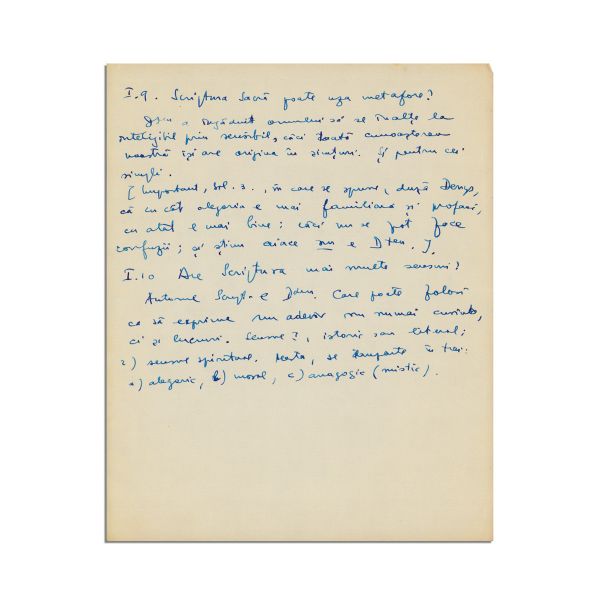 I.9. Scriptura Sacră poate uza metafore?
a îngăduit omului să se înalțe la
inteligibil prin sensibil, căci toată cunoașterea
noastră își are originea în simțuri. Și pentru cei
simpli.
[Important, sol. 3., în care se spune, după Denys,
că cu cât alegoria e mai familiară și profană,
cu atât e mai bine: căci nu se pot face
confuzii; și știm că aceea nu e Dzeu.].
I.10 Are Scriptura mai multe sensuri?
Autorul Script. e Dzeu. Care poate folosi
ca să exprime un adevăr nu numai cuvinte,
ci și lucruri. Sensuri, istoric sau literal;
2) sensul spiritual. Acesta, se împarte în trei:
a) alegoric, b) moral, c) anagogic (mistic).